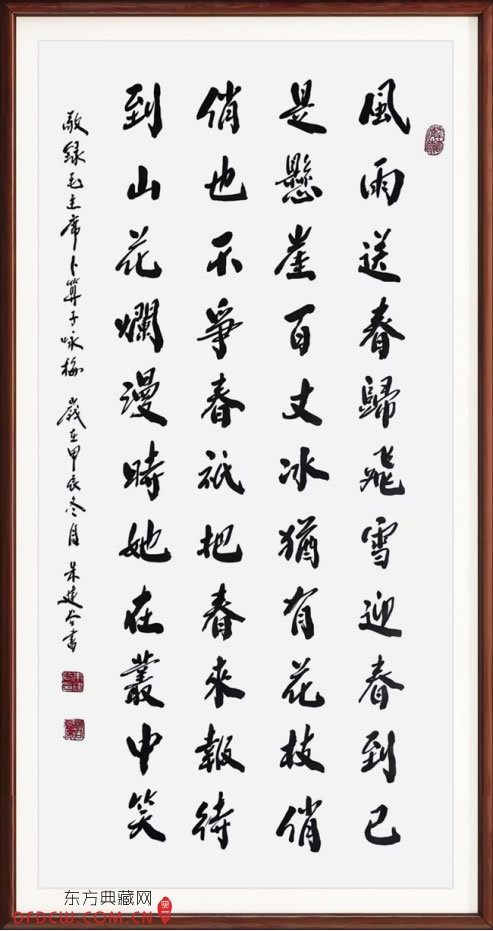 風雨送春歸飛雪迎春到已
是懸崖百丈冰猶有花枝俏
俏也不爭春祇把春來報待
到山花爛漫時她在叢中笑
敬録毛主席卜算子咏梅 歲在甲辰冬月 朱建合書
东方典藏网
DFDCW.COM.CN